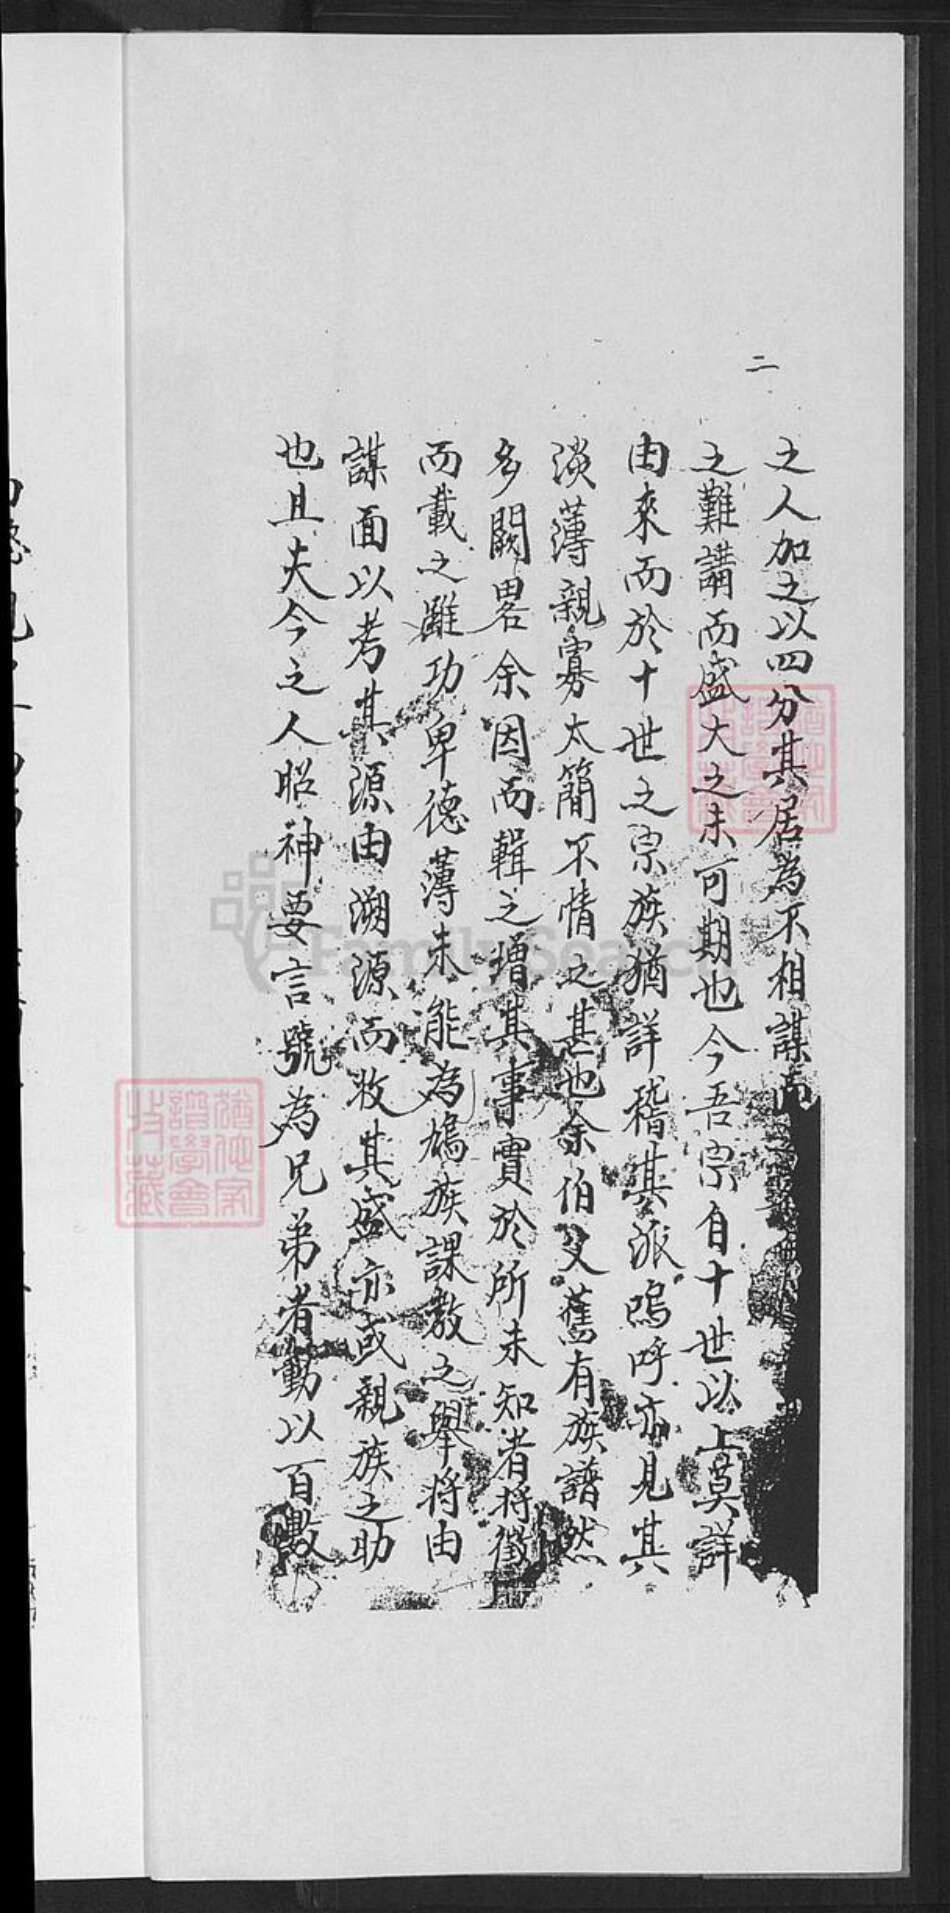 二
之人加之以四分其居為不相謀而
之難講而盛大之未可期也今吾宗自十世以上莫詳
由來而於十世之宗族猶詳稽其派嗚呼亦見其
淡薄親寡太簡不情之甚也余伯父舊有族譜然
多闕畧余因而輯之增其事實於所未知者將徵
而載之雖功卑德薄未能為鳩族課教之舉將由
謀面以考其源由溯源而收其盛亦或親族之助
也且夫今之人昭神要言號為兄弟者動以百數
FamilySearch
譜學會
收藏